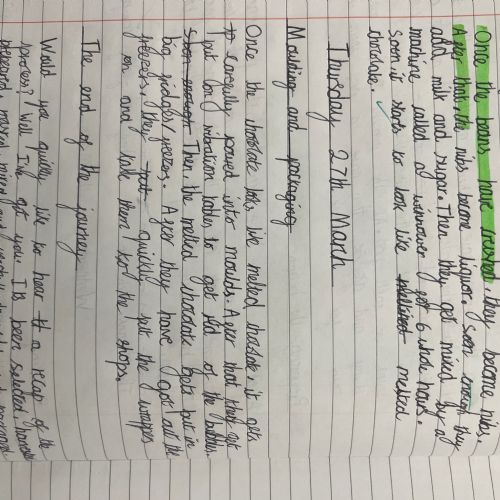 Once the beans have crushed they become nibs.
After that, the nibs become liquor. Soon they
add milk and sugar. Then they get mixed by a
machine called a winnower for 6 whole hours.
Soon it starts to look like melted
chocolate.
Thursday 27th March
Moulding and packaging
Once the chocolate looks like melted chocolate, it gets
carefully poured into moulds. After that they get
put on vibration tables to get rid of the bubbles.
Soon enough Then the melted chocolate gets put in
big fridges/freezers. After they have got out the
freezers, they put quickly put the wrapper
on and take them to the shops.
The end of the journey
Would you quickly like to hear a recap of the
process? Well I've got you. It's been selected, harvested